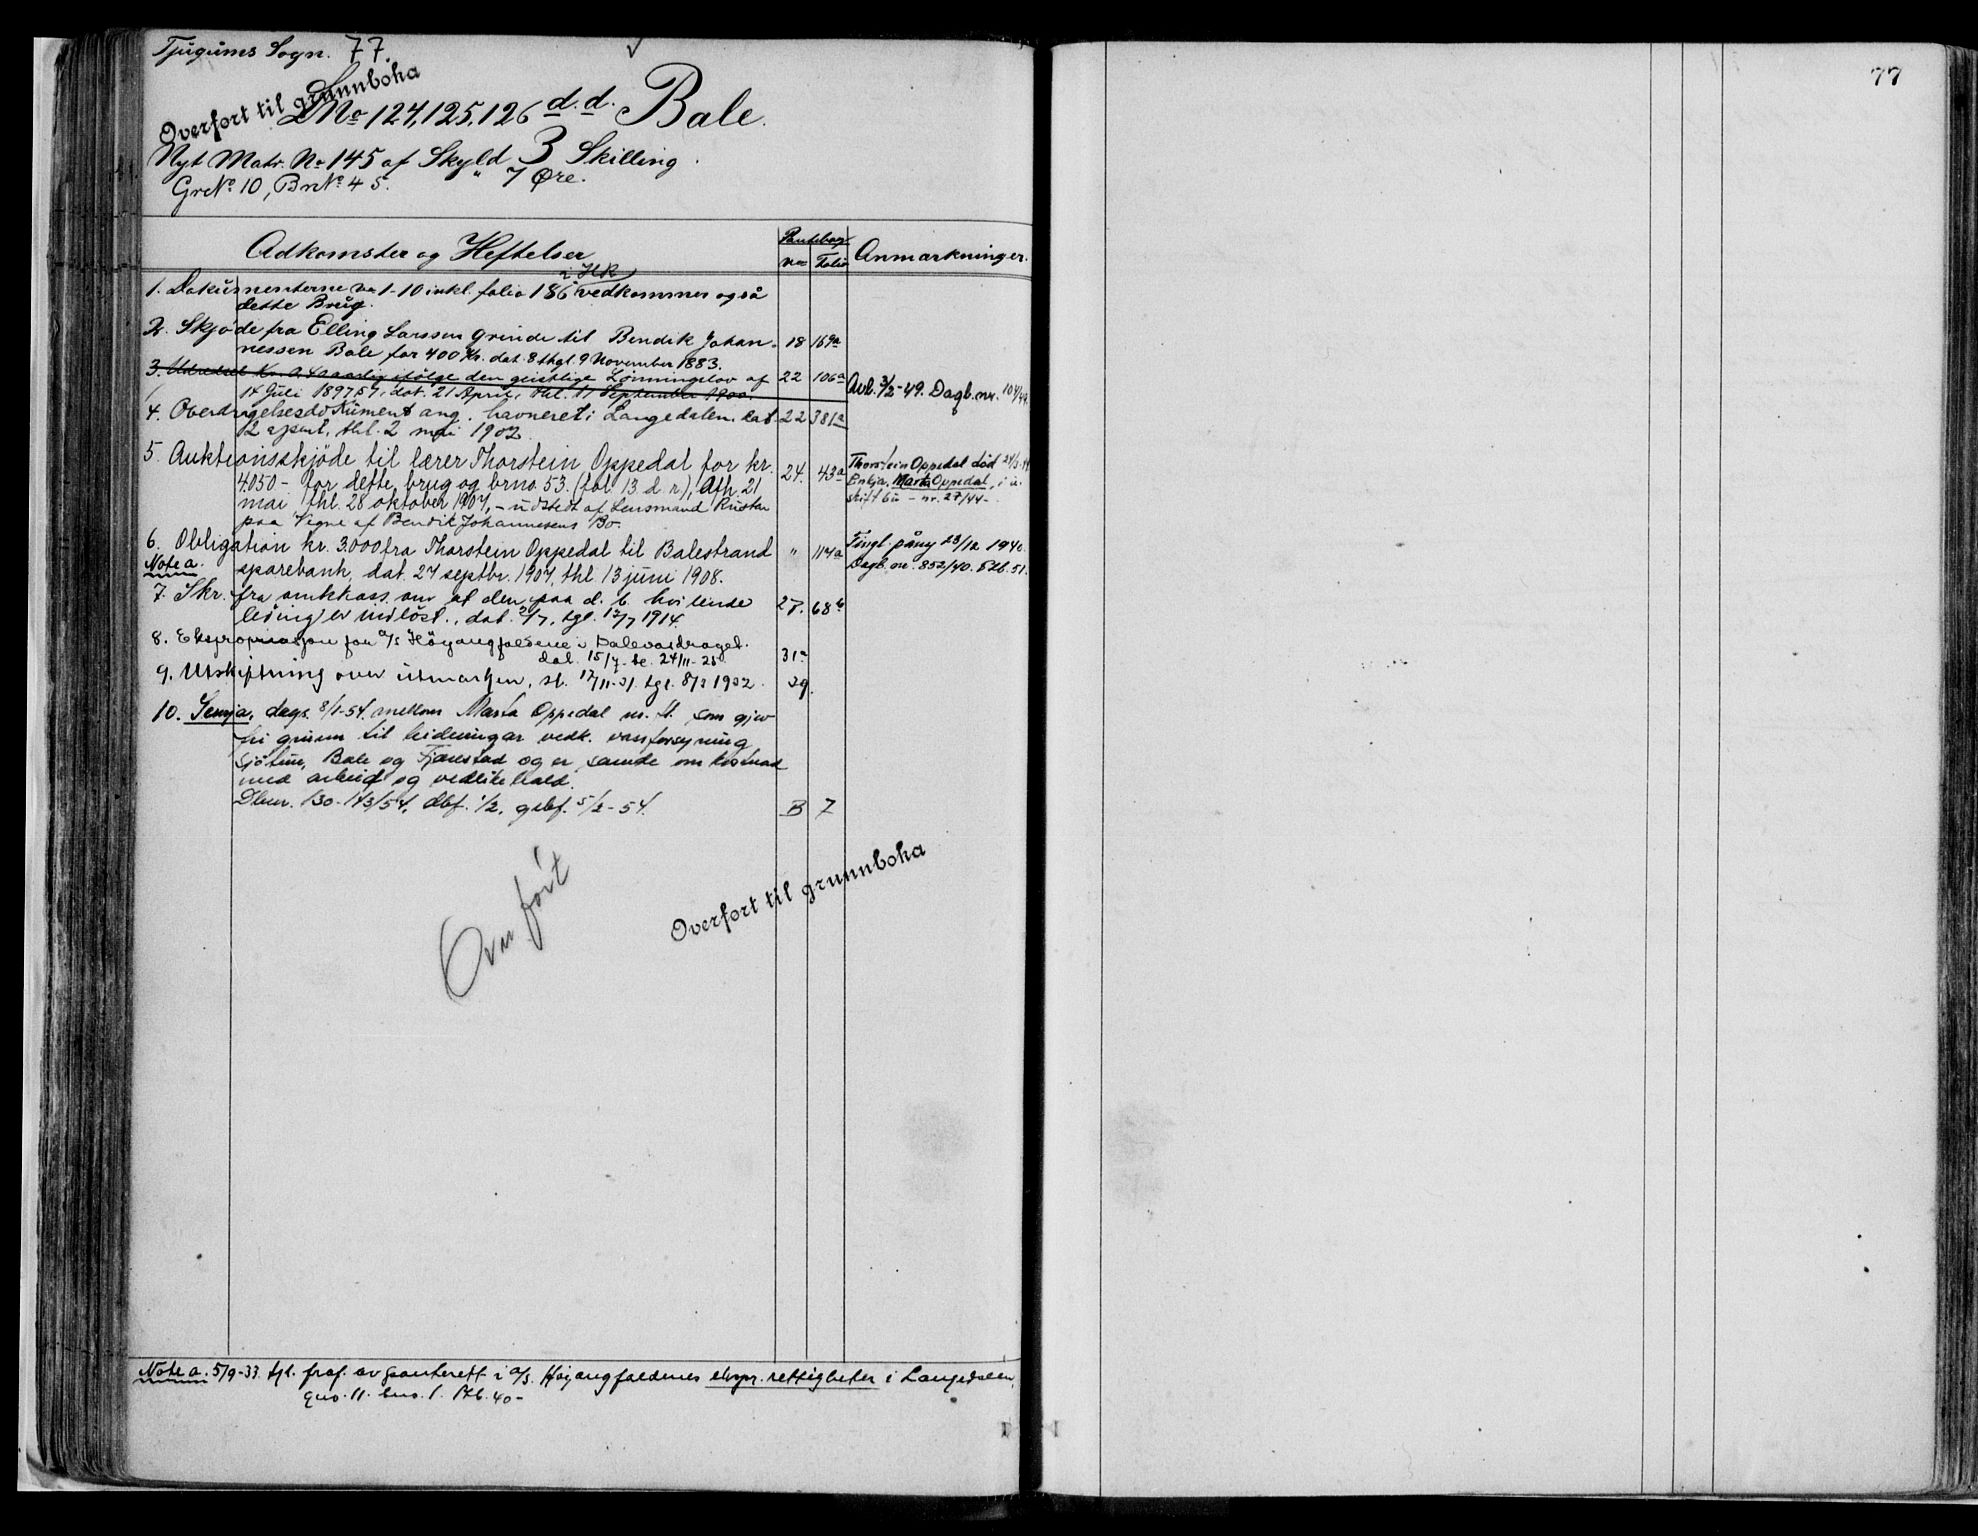 Tjugums Sogn. 77.
Overført til grunnboha
LNo 124, 125, 126 d.d. Bale.
Nyt Matr. No 145 af Skyld 3 Skilling.
GrNo 10, BrNo 45. " 7 Øre.
Adkomster og Heftelser
Pantebog
No Folio
Anmærkninger.
1. Dokumenterne No 1-10 inkl. folio 186 i HR vedkommer også
dette Brug.
2. Skjøde fra Elling Larssen Grinde til Bendik Johan- 18 169a
nessen Bale for 400 Kr. dat. 8 thgl. 9 November 1883.
3. Udredsel Kr. aarlig ifølge den geistlige Lønningslov af 22 106a Avl. 3/2-49. Dagb.nr. 104/49.
14 Juli 1897 § 7, dat. 21 April, thl. 17 September 1900.
4. Overdragelsesdokument ang. havneret i Langedalen, dat. 22 381a
12 april, thl. 2 mai 1902.
5. Auktionsskjöde til lærer Thorstein Oppedal for kr. 24. 43a Thorstein Oppedal död
4050- for dette brug og brno. 53. (fol. 13 d. r.), Afh. 21 Enkja, Marta Oppedal, i u-
mai thl. 28 oktober 1907, - udstedt af Lensmand skift bu - nr. 27/44-.
paa Vegne af Bendik Johannesens Bo.
6. Obligation kr. 3.000 fra Thorstein Oppedal til Balestrand " 117a Tingl. påny 23/12 1940.
Note a. sparebank, dat. 27 septbr. 1907, thl 13 juni 1908. Dagb. nr. 852/40. Ptb. 51.
7. Skr. fra amtskass. om at den paa d. b. hvilende 27. 68b
leding er indlöst., dat. 2/7, tgl. 17/7 1914.
8. Ekspropriasjon for A/S Höyangfaldene i Dalevasdraget.
dat. 15/7- te. 24/11-25. 31a
9. Utskiftning over utmarken, sl. 17/11-31. tgl. 8/3 1932. 39.
10. Semja, dags. 8/1-54. mellom Marta Oppedal m. fl. som gjev
fri grunn til leidningar vedk. vassforsyning
Sjötun, Bale og Fjærestad og er samde om kostnad
med arbeid og vedlikehald.
Dbnr. 130-143/54, dbf. 1/2, grbf. 5/2-54. B 7
Overfört
Overført til grunnboha
Note a. 5/9-33 tgl. fraf. av panterett i A/S. Höyangfaldenes ekspr. rettigheter i Langedalen,
gno. 11. bno. 1. Ptb. 40-
77